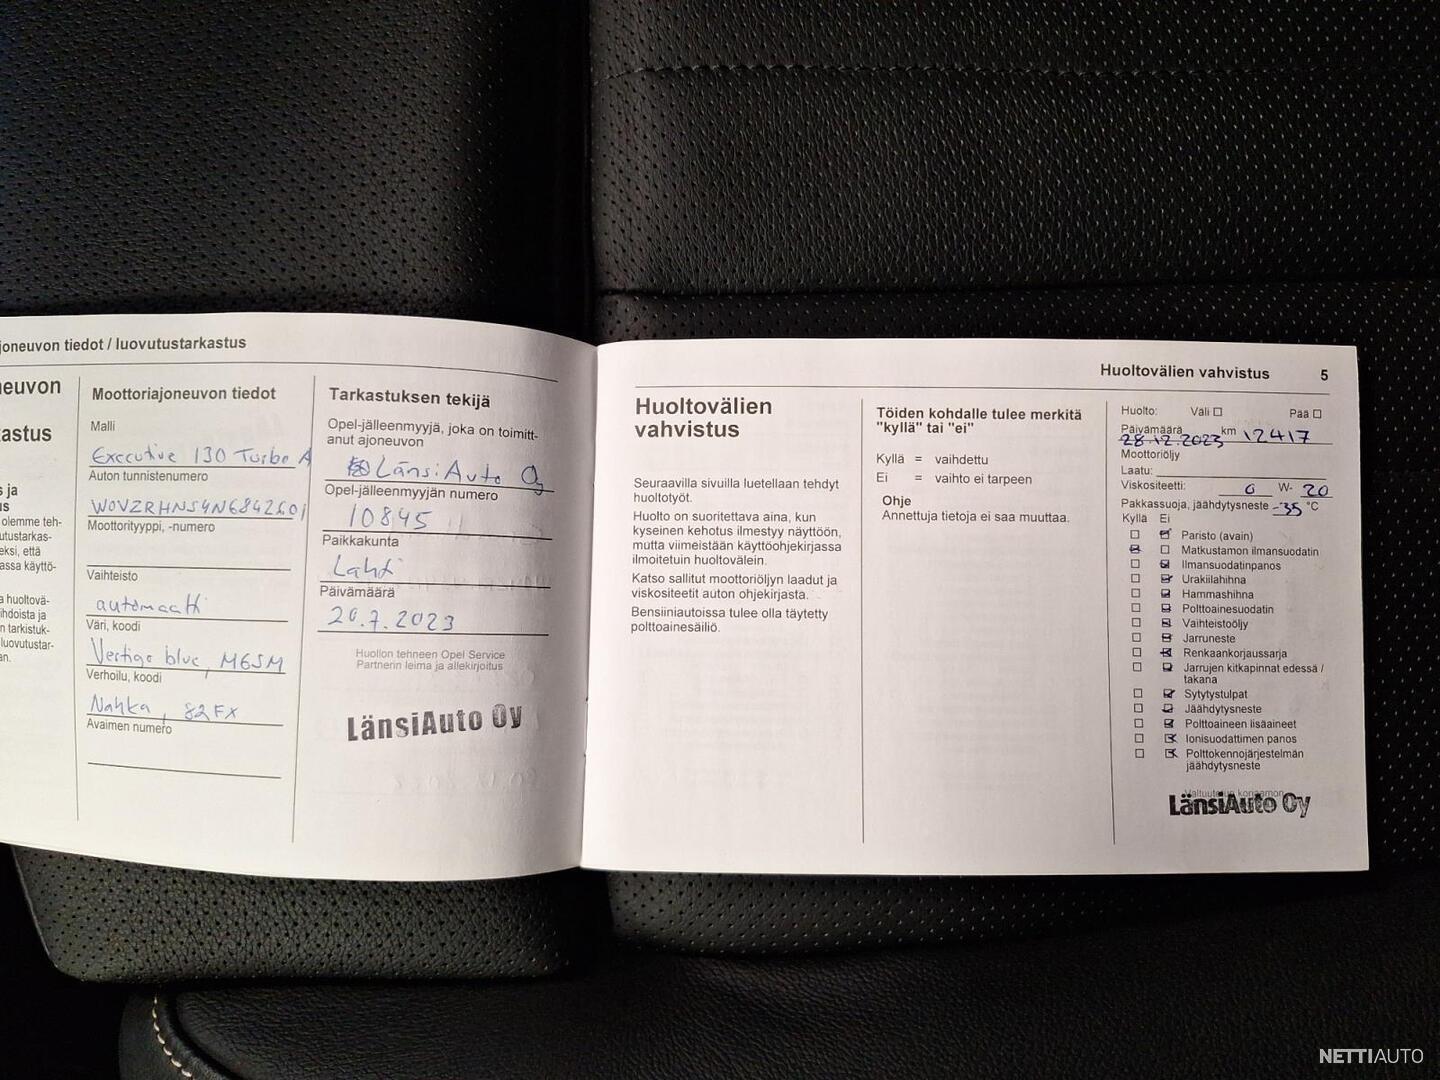 joneuvon tiedot / luovutustarkastus
euvon
astus
s ja
us
olemme teh-
utustarkas-
eksi, että
assa käyttö-
a huoltovä-
ihdoista ja
n tarkistuk-
luovutustar-
an.
Moottoriajoneuvon tiedot
Malli
Executive 130 Turbo A
Auton tunnistenumero
W0VZRHNS4N6842601
Moottorityyppi, -numero
Vaihteisto
automaatti
Väri, koodi
Vertigo blue, M6SM
Verhoilu, koodi
Nahka, 82FX
Avaimen numero
Tarkastuksen tekijä
Opel-jälleenmyyjä, joka on toimitt-
anut ajoneuvon
LänsiAuto Oy
Opel-jälleenmyyjän numero
10845
Paikkakunta
Lahti
Päivämäärä
20.7.2023
Huollon tehneen Opel Service
Partnerin leima ja allekirjoitus
LänsiAuto Oy
Huoltovälien vahvistus 5
Huoltovälien
vahvistus
Seuraavilla sivuilla luetellaan tehdyt
huoltotyöt.
Huolto on suoritettava aina, kun
kyseinen kehotus ilmestyy näyttöön,
mutta viimeistään käyttöohjekirjassa
ilmoitetuin huoltovälein.
Katso sallitut moottoriöljyn laadut ja
viskositeetit auton ohjekirjasta.
Bensiiniautoissa tulee olla täytetty
polttoainesäiliö.
Töiden kohdalle tulee merkitä
"kyllä" tai "ei"
Kyllä = vaihdettu
Ei = vaihto ei tarpeen
Ohje
Annettuja tietoja ei saa muuttaa.
Huolto: Väli Pää
Päivämäärä 28.12.2023 km 12417
Moottoriöljy
Laatu:
Viskositeetti: 0 W- 20
Pakkassuoja, jäähdytysneste -35 °C
Kyllä Ei
Paristo (avain)
Matkustamon ilmansuodatin
Ilmansuodatinpanos
Urakiilahihna
Hammashihna
Polttoainesuodatin
Vaihteistoöljy
Jarruneste
Renkaankorjaussarja
Jarrujen kitkapinnat edessä /
takana
Sytytystulpat
Jäähdytysneste
Polttoaineen lisäaineet
Ionisuodattimen panos
Polttokennojärjestelmän
jäähdytysneste
LänsiAuto Oy
NETTIAUTO